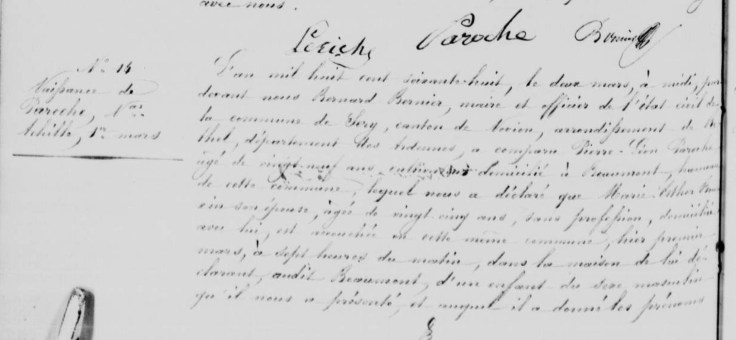 avec nous.
Leriche Paroche Bernier
N° 13
Naissance de
Paroche, N.as
Achille, 1er mars
L'an mil huit cent soixante-huit, le deux mars, à midi, par
devant nous Bernard Bernier, maire et officier de l'état civil de
la commune de Sery, canton de Novion, arrondissement de Re
thel, département des Ardennes, a comparu Pierre-Léon Paroche
âgé de vingt-neuf ans domicilié à Beaumont, hameau
de cette commune, lequel nous a déclaré que Marie-Esther
son épouse, âgée de vingt cinq ans, sans profession, domiciliée
avec lui, est accouchée en cette même commune, hier premier
mars, à sept heures du matin, dans la maison de lui dé
clarant, audit Beaumont, d'un enfant du sexe masculin
qu'il nous a présenté, et auquel il a donné les prénoms